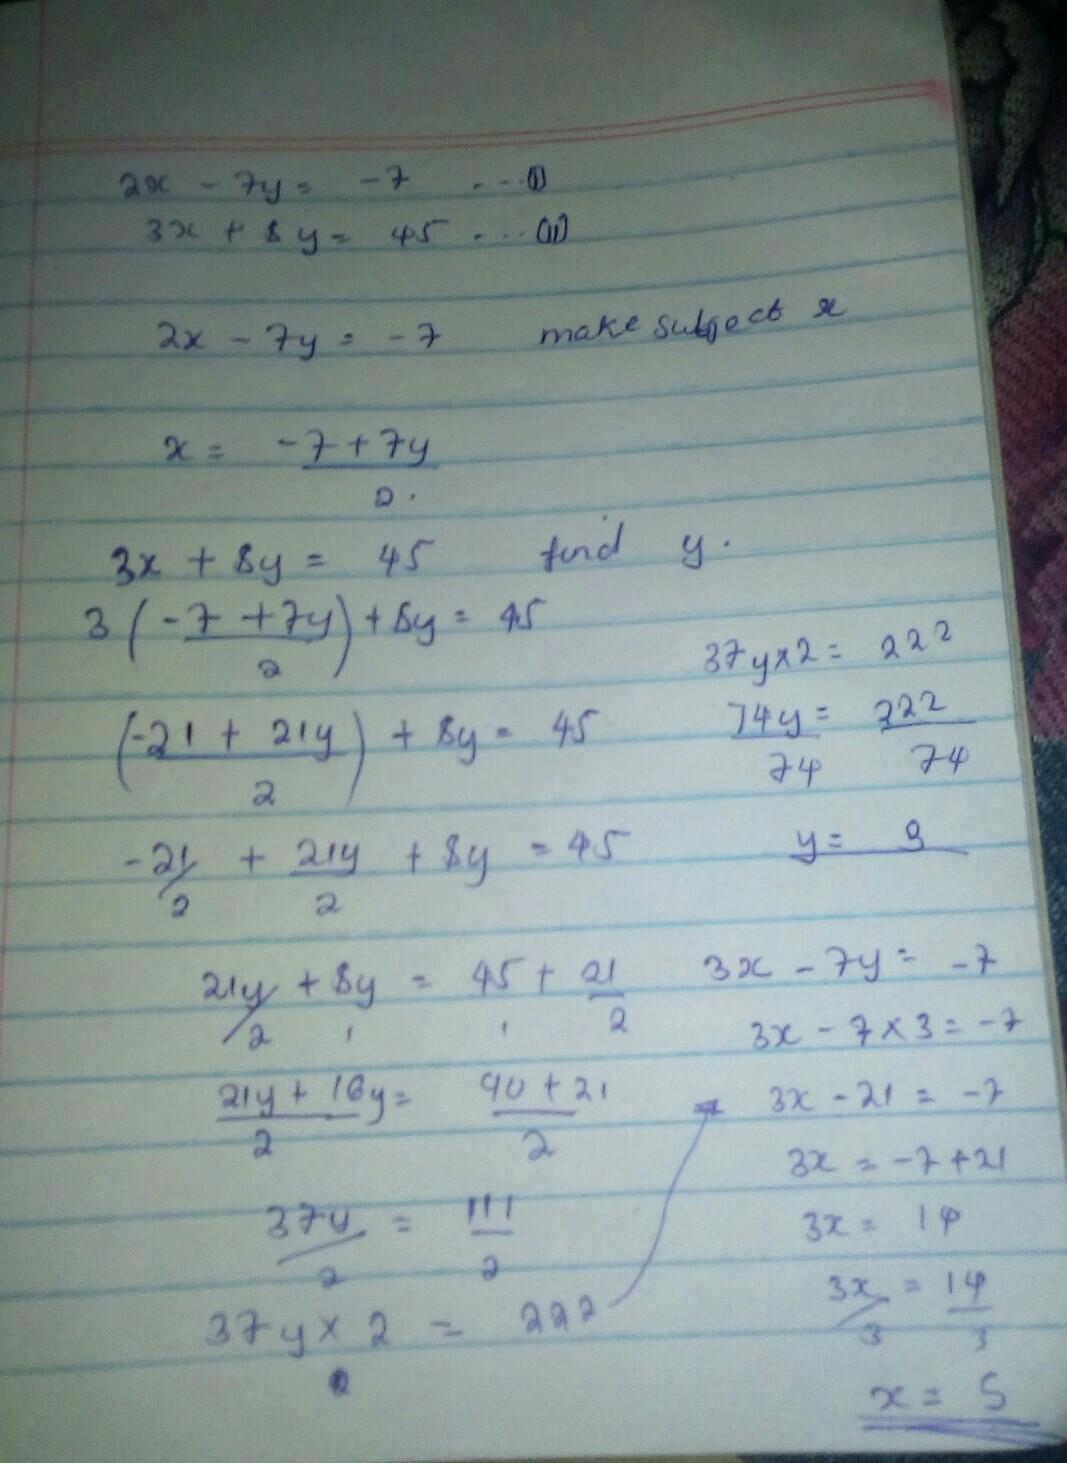 2x - 7y = -7 ... (i)
3x + 8y = 45 ... (ii)
2x - 7y = -7 make subject x
x = -7 + 7y / 2.
3x + 8y = 45 find y.
3 ( -7 + 7y / 2 ) + 8y = 45
( -21 + 21y / 2 ) + 8y = 45
-21/2 + 21y/2 + 8y = 45
21y/2 + 8y = 45 + 21/2
21y + 16y / 2 = 90 + 21 / 2
37y/2 = 111/2
37y x 2 = 222
37y x 2 = 222
74y/74 = 222/74
y = 3
3x - 7y = -7
3x - 7 x 3 = -7
3x - 21 = -7
3x = -7 + 21
3x = 14
3x/3 = 14/3
x = 5